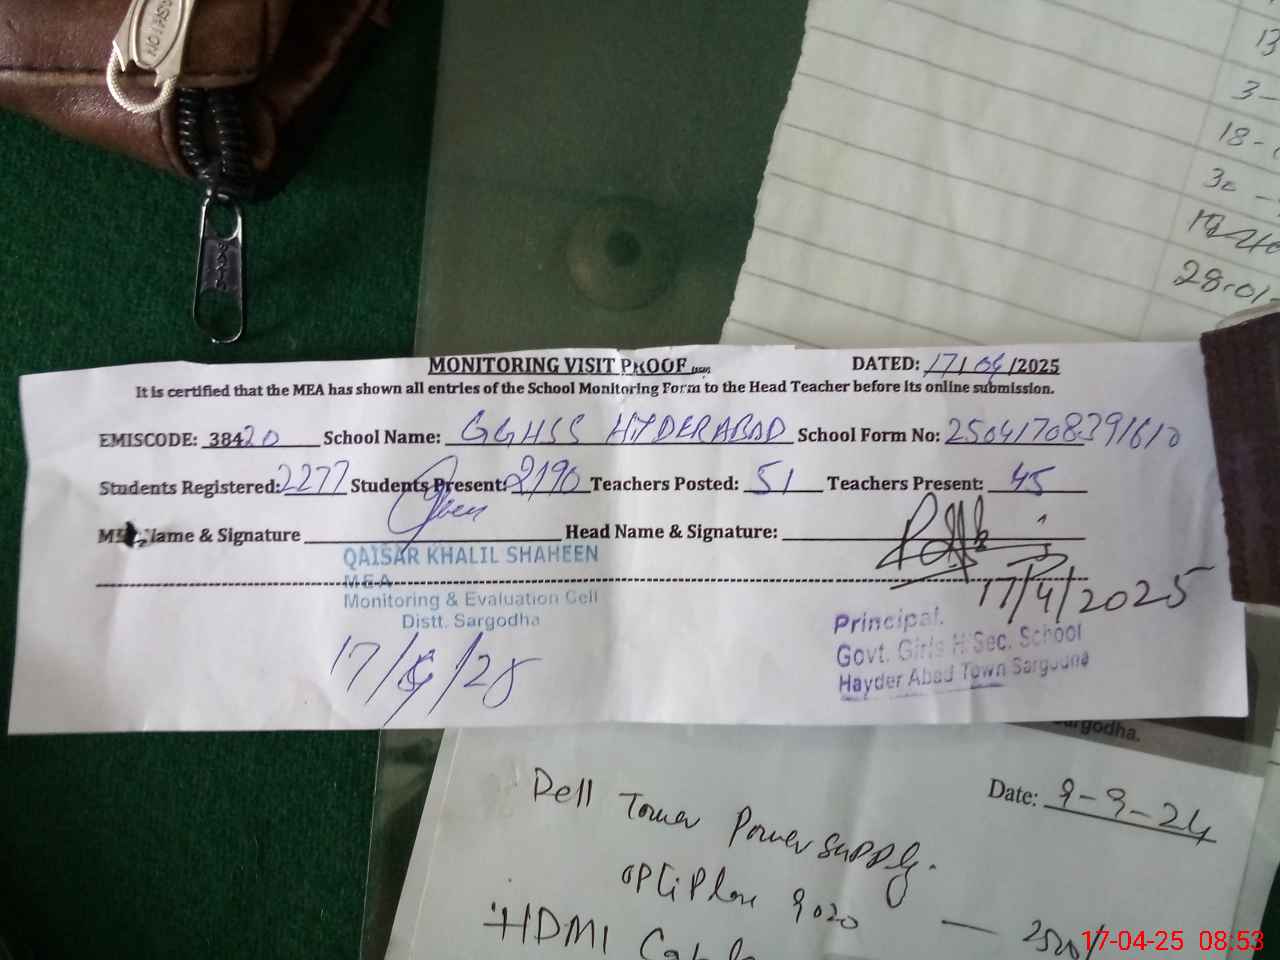 13
3-
18-
30 -
28-01
MONITORING VISIT PROOF DATED: 17/04/2025
It is certified that the MEA has shown all entries of the School Monitoring Form to the Head Teacher before its online submission.
EMISCODE: 38420 School Name: GGHSS HYDERABAD School Form No: 25041708391610
Students Registered: 2277 Students Present: 2190 Teachers Posted: 51 Teachers Present: 45
Name & Signature Head Name & Signature:
QAISAR KHALIL SHAHEEN
MEA
Monitoring & Evaluation Cell
Distt. Sargodha
17/4/25
17/4/2025
Principal.
Govt. Girls H.Sec. School
Hayder Abad Town Sargodha
argodha.
Date: 9-9-24
Dell Tower Power supply.
OPtiPlex 9020 — 2500/
HDMI Cable
17-04-25 08:53